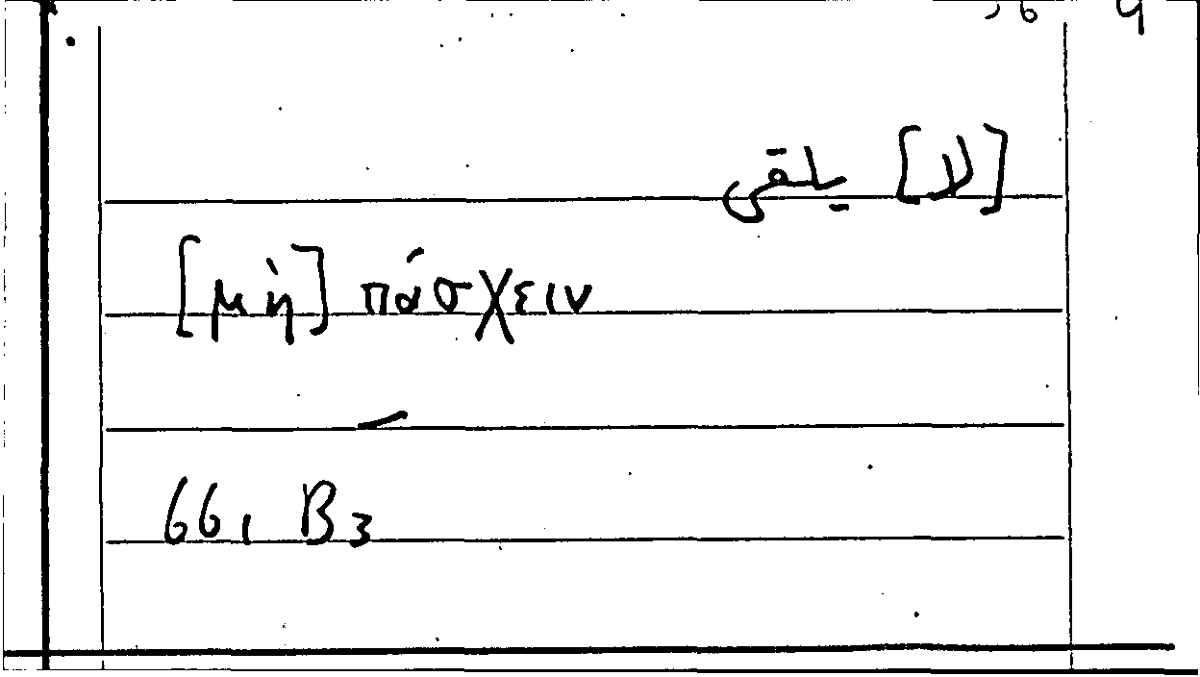 [لا] يلقى
[μὴ] πάσχειν
–
66, B3